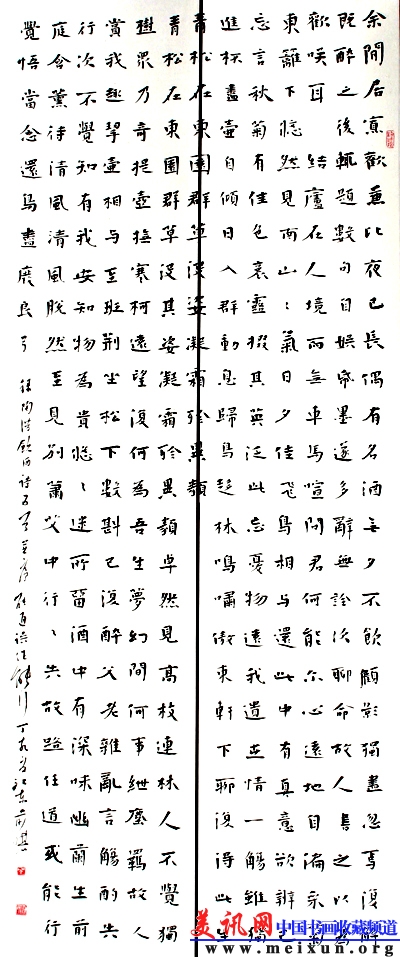 余閒居寡歡兼比夜已長偶有名酒無夕不飲顧影獨盡忽焉復醉
既醉之後輒題數句自娛紙墨遂多辭無詮次聊命故人書之以為
歡唉耳 結廬在人境而無車馬喧問君何能尔心遠地自偏采菊
東籬下悠然見南山〻氣日夕佳飛鳥相與還此中有真意欲辨已
忘言秋菊有佳色裛露掇其英泛此忘憂物遠我遺世情一觴雖獨
進杯盡壺自傾日入群動息歸鳥趨林鳴嘯傲東軒下聊復得此生
青松在東園群草沒姿凝霜殄異類
青松在東園群草沒其姿凝霜殄異類卓然見高枝連林人不覺獨
樹眾乃奇提壺撫寒柯遠望復何為吾生夢幻間何事紲塵羈故人
賞我趣挈壺相與至班荊坐松下數斟已復醉父老雜亂言觴酌失
行次不覺知有我安知物為貴悠〻迷所留酒中有深味幽蘭生前
庭含薰待清風清風脫然至見別蕭艾中行〻失故路任道或能行
覺悟當念還鳥盡廢良弓
美讯网 中国书画收藏频道
www.meixun.org